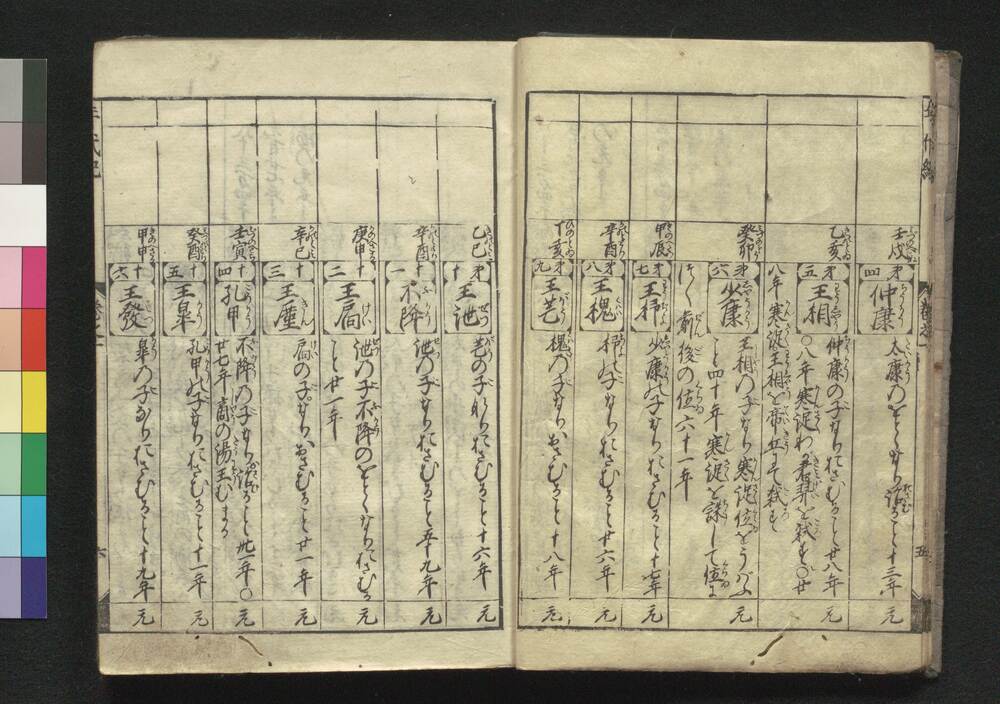 壬戌
第四
仲康
太康のをとゝなり治ること十三年
元
乙亥
第五
王相
仲康の子なりおさむること廿八年
〇八年寒浞わが君羿を弑す〇廿
八年寒浞王相を帝丘にて弑す
元
癸卯
第六
少康
王相の子なり寒浞位をうばふ
こと四十年寒浞を誅して位に
つく前後の位六十一年
元
甲辰
第七
王杼
少康の子なりおさむること十七年
元
辛酉
第八
王槐
杼の子なりおさむること廿六年
元
丁亥
第九
王芒
槐の子なりおさむること十八年
元
五
乙巳
第十
王泄
芒の子なりおさむること十六年
元
辛酉
十一
不降
泄の子なりおさむること五十九年
元
庚申
十二
王扃
泄の子不降のをとゝなりおさむる
こと廿一年
元
辛巳
十三
王廑
扃の子なりおさむること廿一年
元
壬寅
十四
孔甲
不降の子なり治ること卅一年〇
廿七年商の湯王むまる
元
癸酉
十五
王皐
孔甲の子なりおさむること十一年
元
甲申
十六
王發
皐の子なりおさむること十九年
元
六